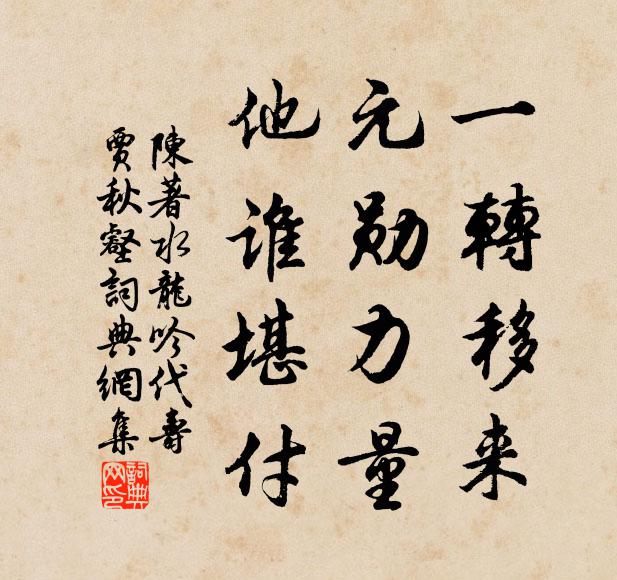 一轉移来
元勋力量
他谁堪付
陳著水龍吟代壽
賈秋壑詞典網集
詞典网印